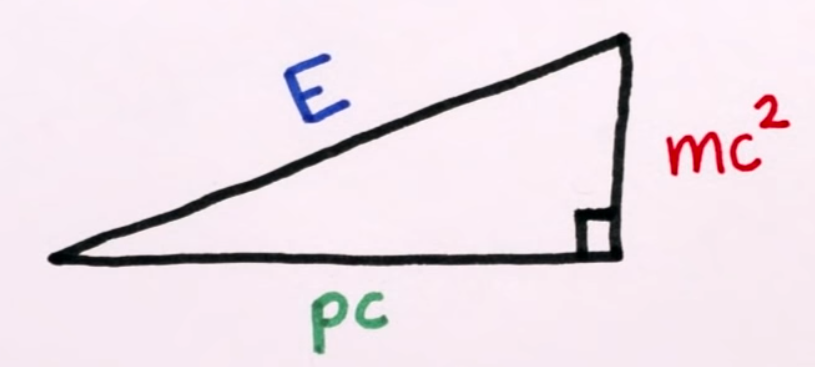 E
mc²
pc